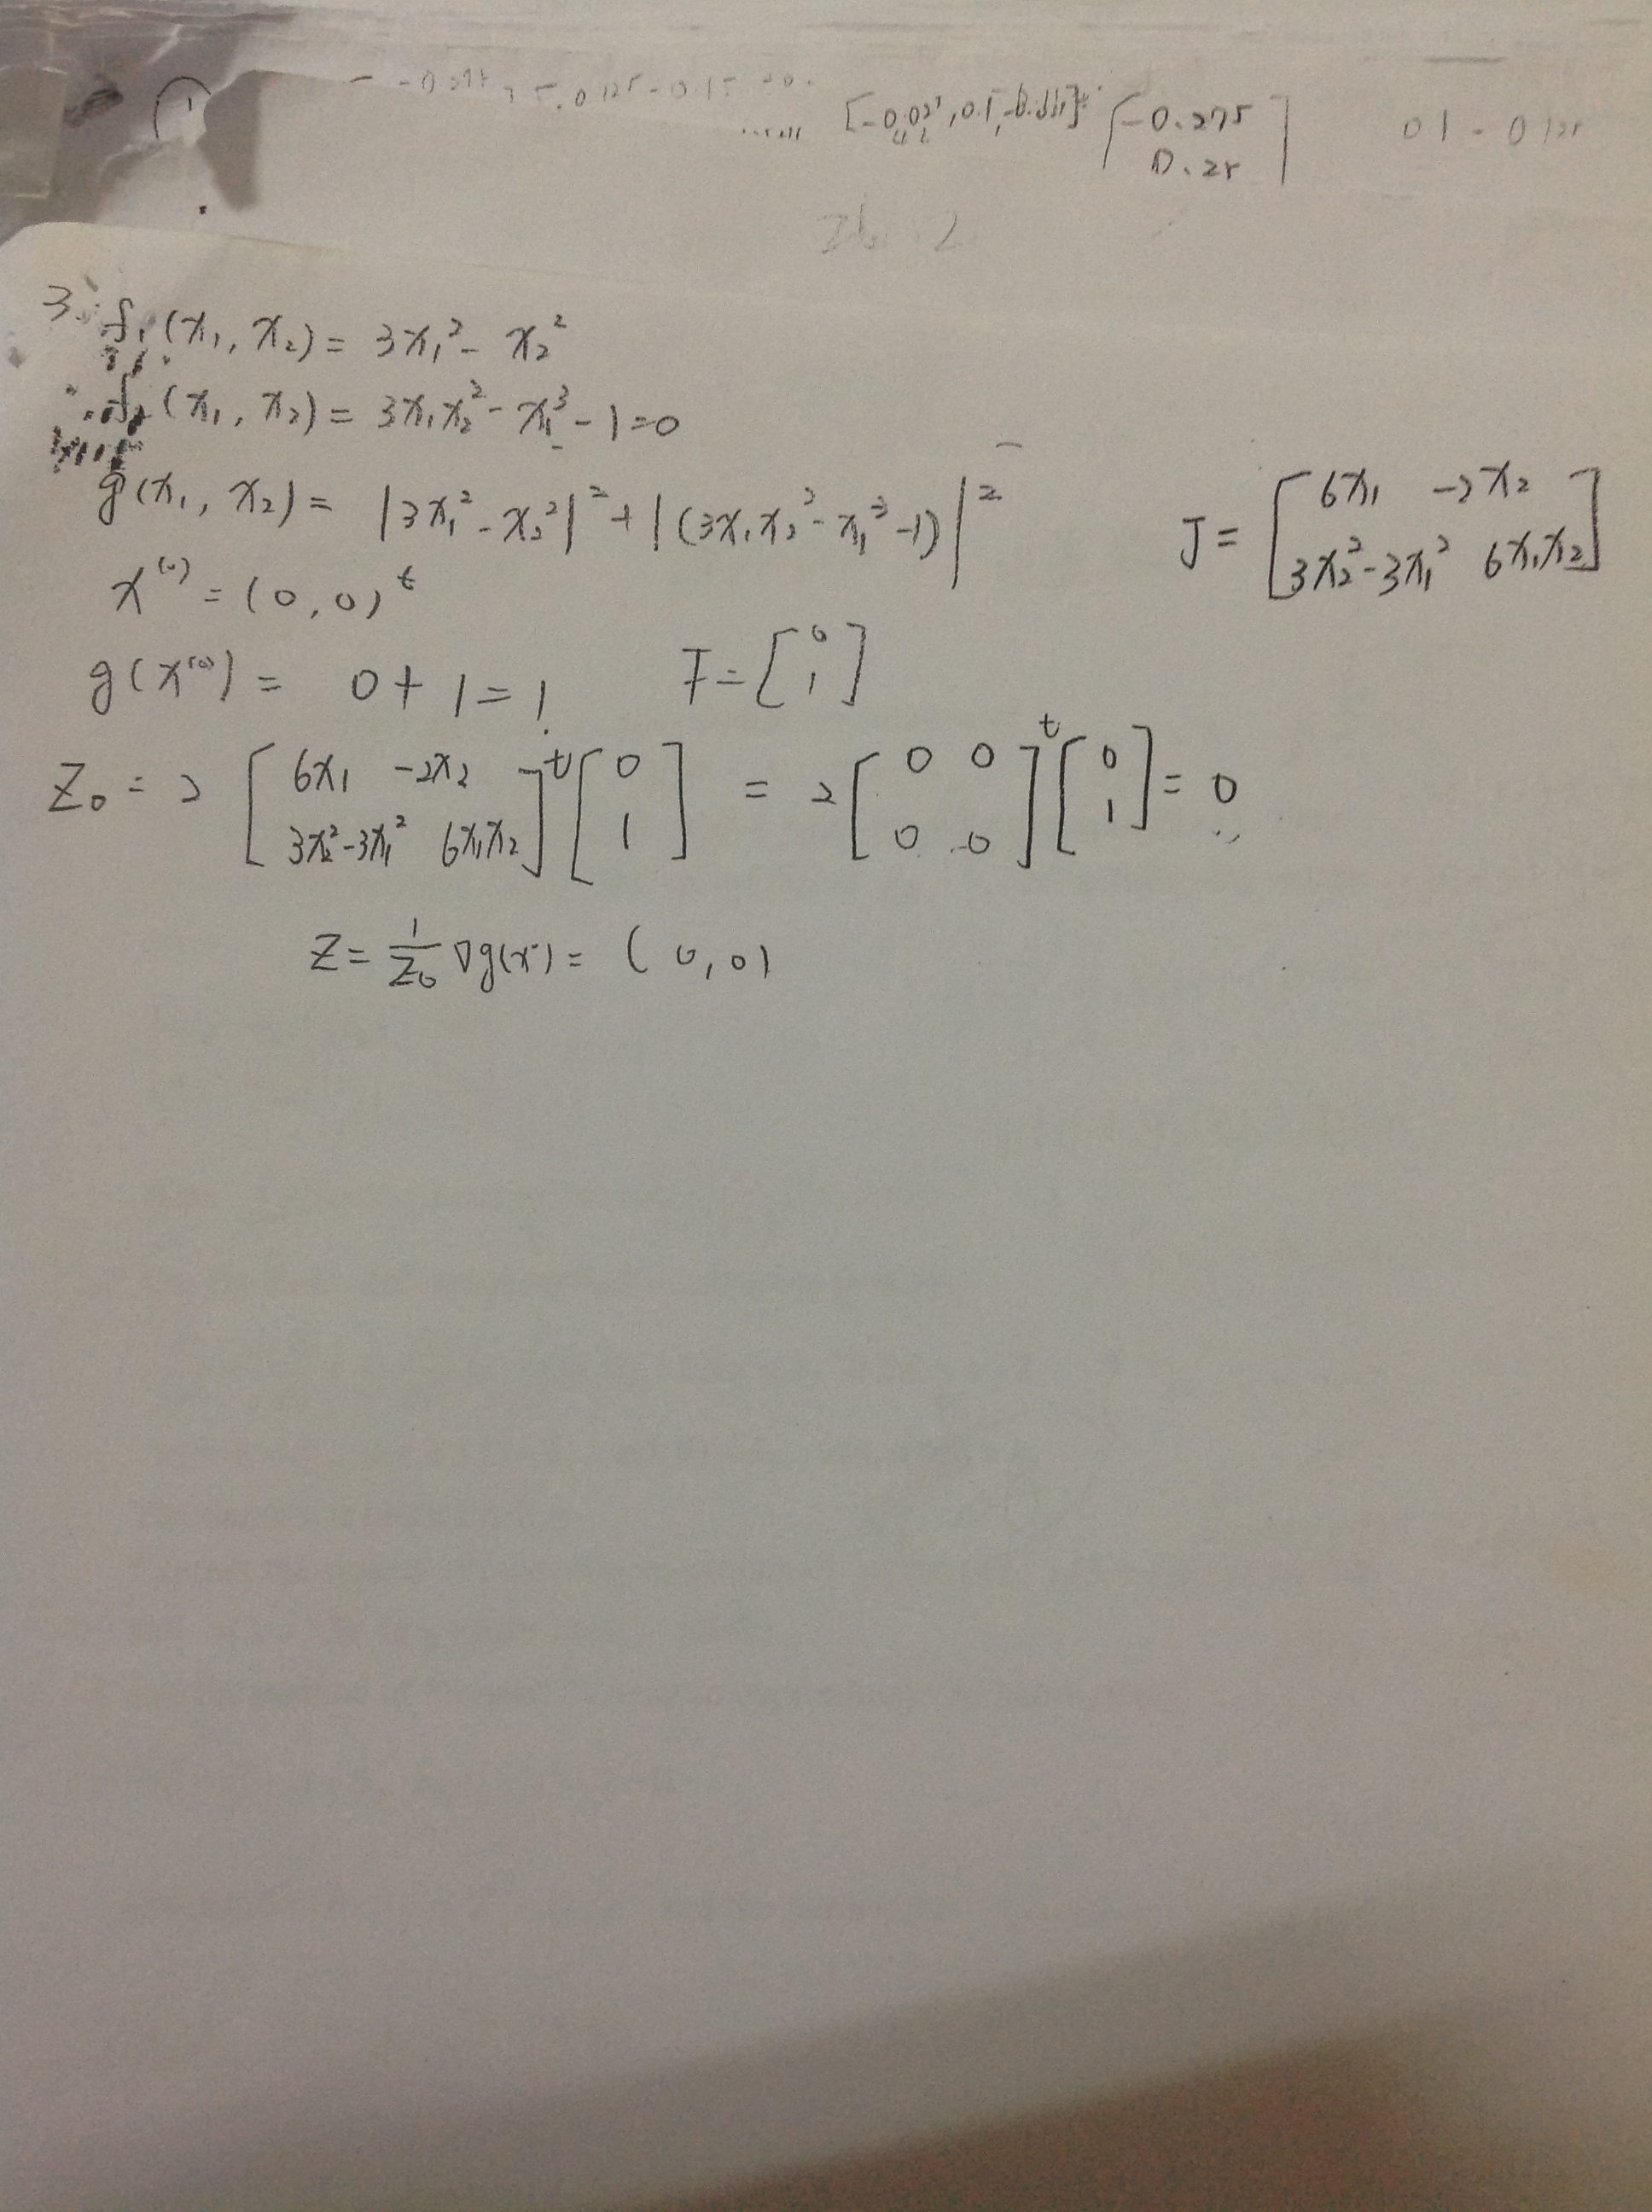 [-0.025, 0.1, [-0.275
0.25]
0.1 - 0.125
3. f₁(x₁, x₂) = 3x₁² - x₂²
f₂(x₁, x₂) = 3x₁x₂² - x₁³ - 1 = 0
g(x₁, x₂) = |3x₁² - x₂²|² + |(3x₁x₂² - x₁³ - 1)|²
J = [6x₁ -2x₂
3x₂² - 3x₁² 6x₁x₂]
x⁽⁰⁾ = (0, 0)ᵗ
g(x⁽⁰⁾) = 0 + 1 = 1 F = [0
1]
Z₀ = 2 [6x₁ -2x₂
3x₂² - 3x₁² 6x₁x₂]ᵗ [0
1] = 2 [0 0
0 0]ᵗ [0
1] = 0
Z = 1/Z₀ ∇g(x) = (0, 0)